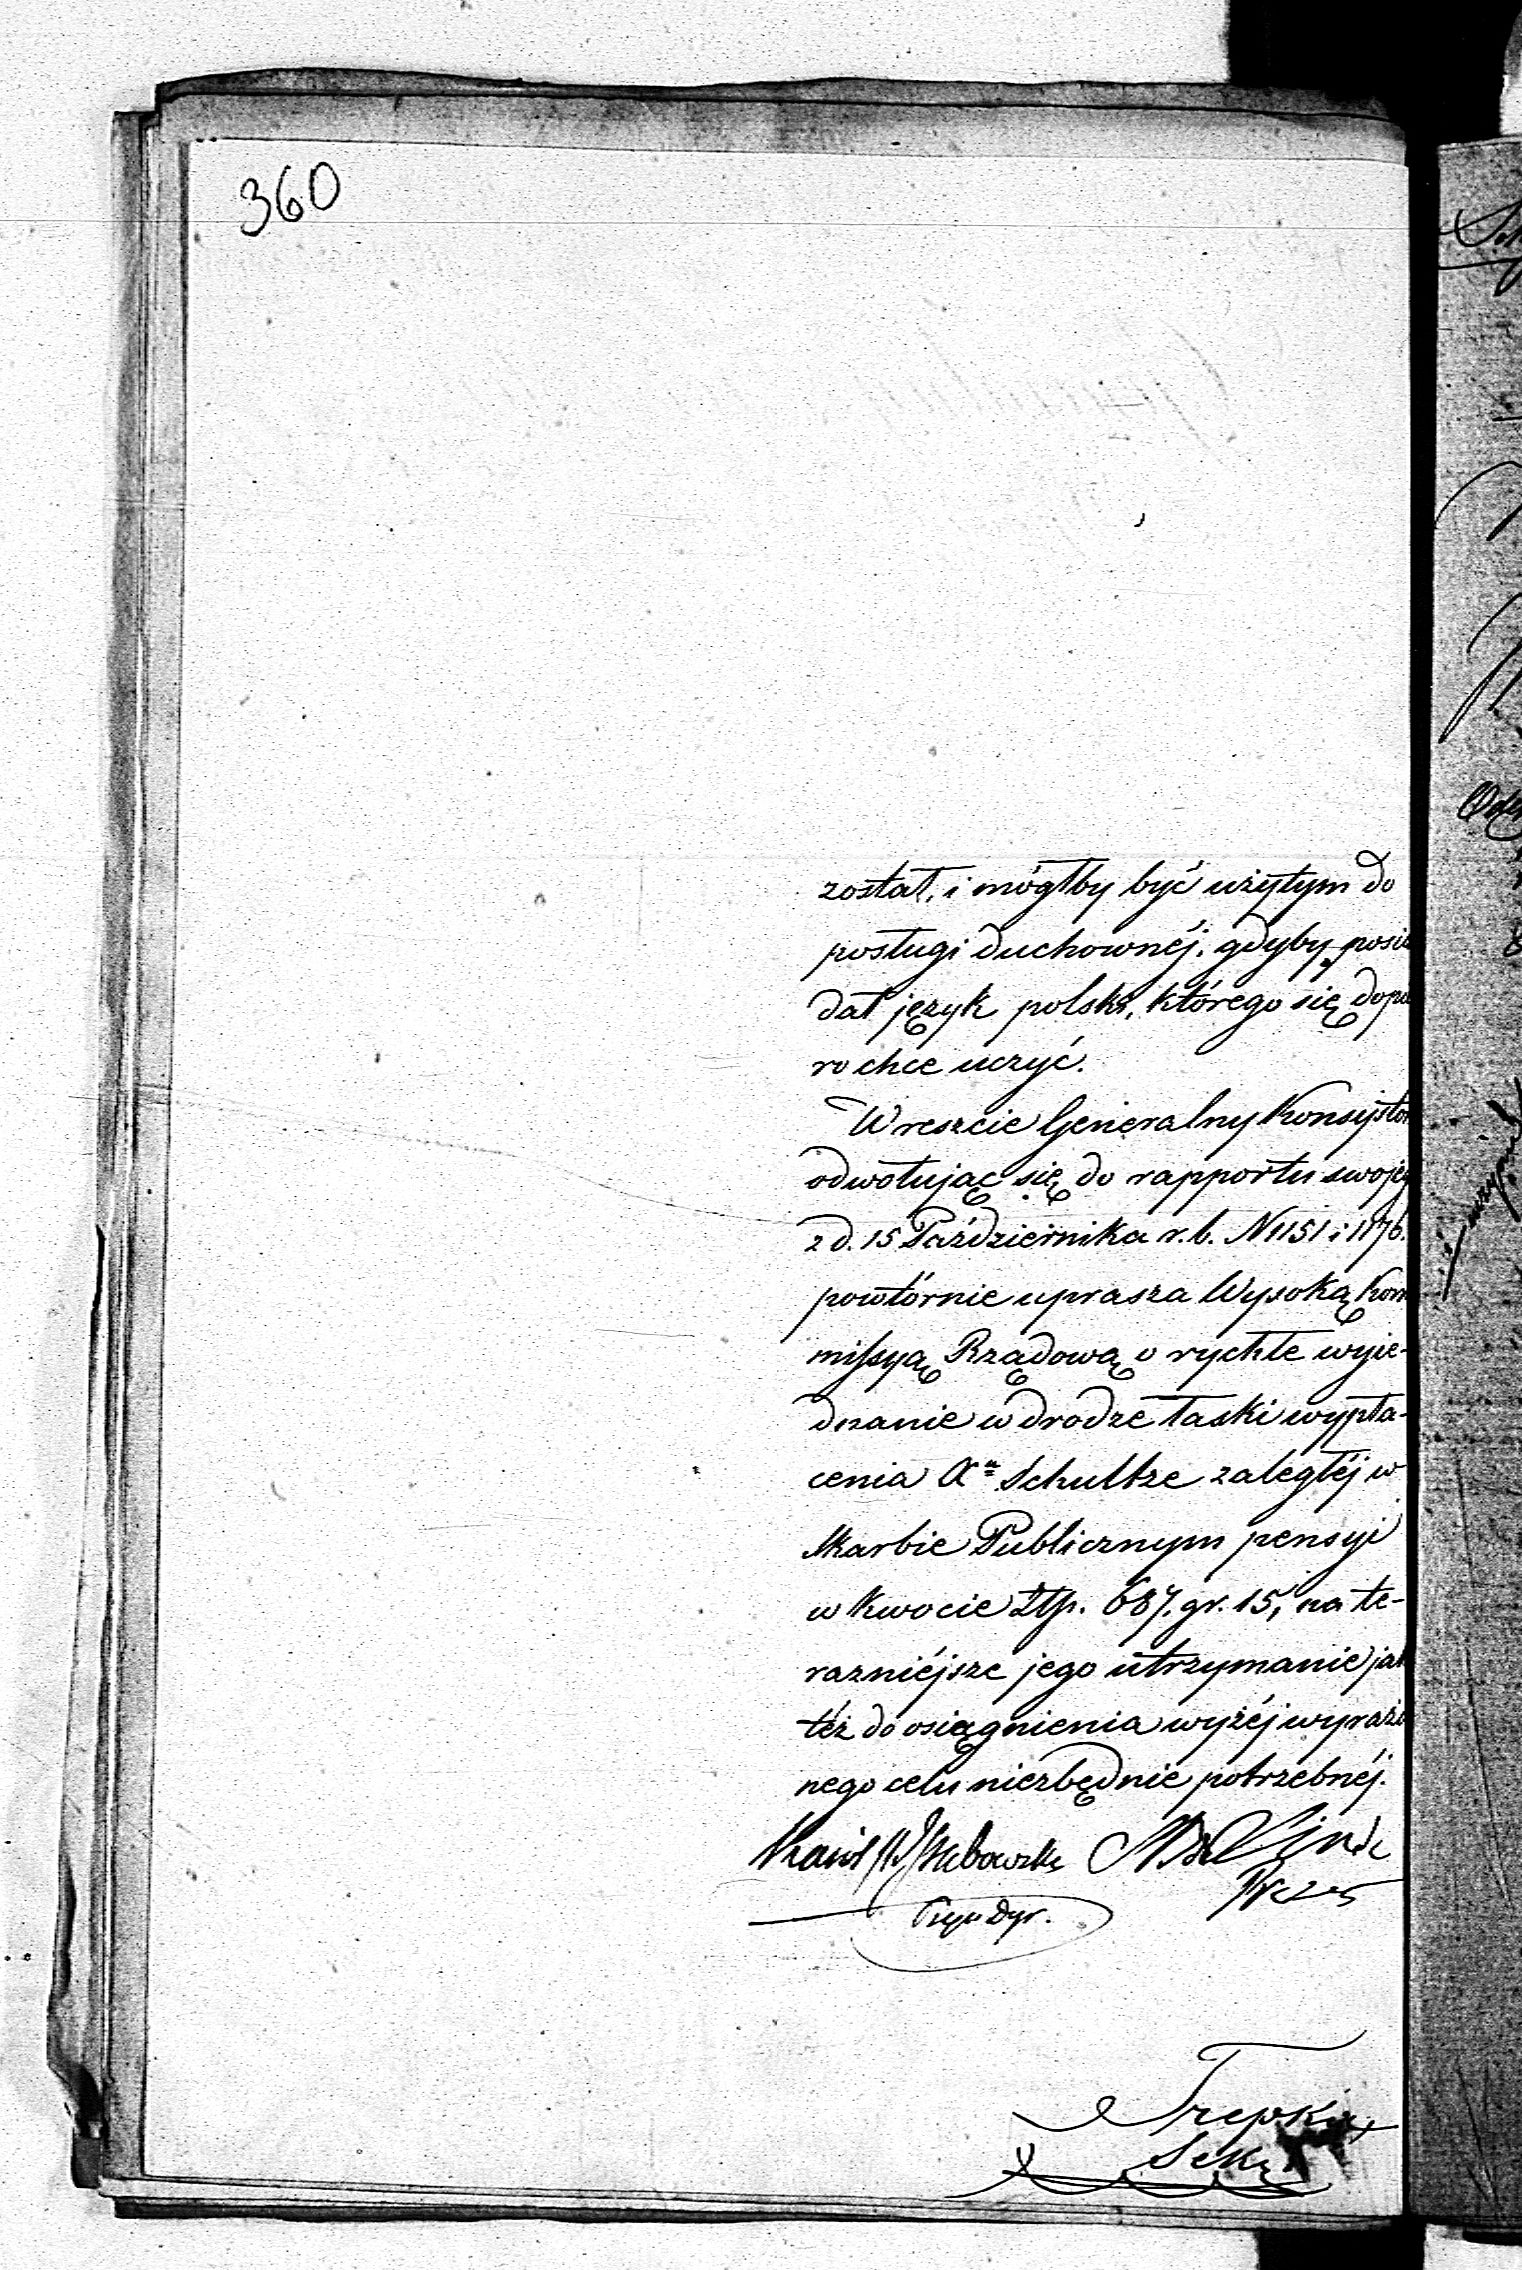 360
został, i mógłby być użytym do
posługi duchownéj, gdyby posia
dał język polski, którego się dopie
ro chce uczyć.
Wreszcie Generalny Konsystor
odwołując się do rapportu swoje
z d. 15 Października r. b. N 1151 i 1176.
powtórnie uprasza Wysoką Kom
missyą Rządową o rychłe wyie-
dnanie w drodze łaski wypła-
cenia Xu Schultze zaległéj w
Skarbie Publicznym pensyi
w kwocie Złp. 687. gr. 15, na te-
razniéjsze jego utrzymanie jak
téż do osiągnienia wyżéj wyrażo
nego celu niezbędnie potrzebnéj.
Linde
Prezes
Trepka
Sekr